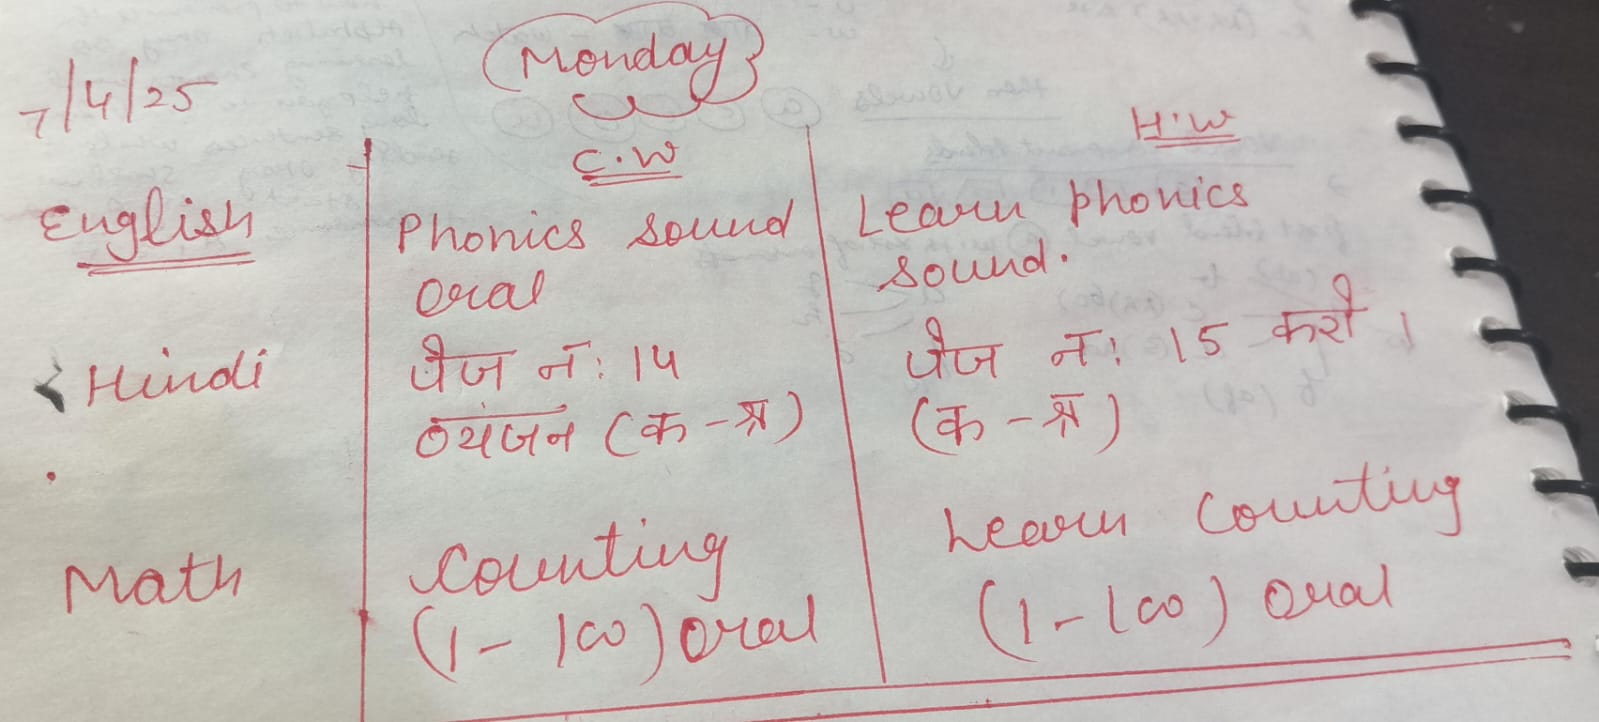 Monday
7/4/25
C.W
H.W
English
Phonics sound
oral
Learn phonics
sound.
Hindi
पेज नं: 14
व्यंजन (क-श्र)
पेज नं: 15 करो ।
(क-श्र)
Math
Counting
(1-100) oral
Learn Counting
(1-100) oral